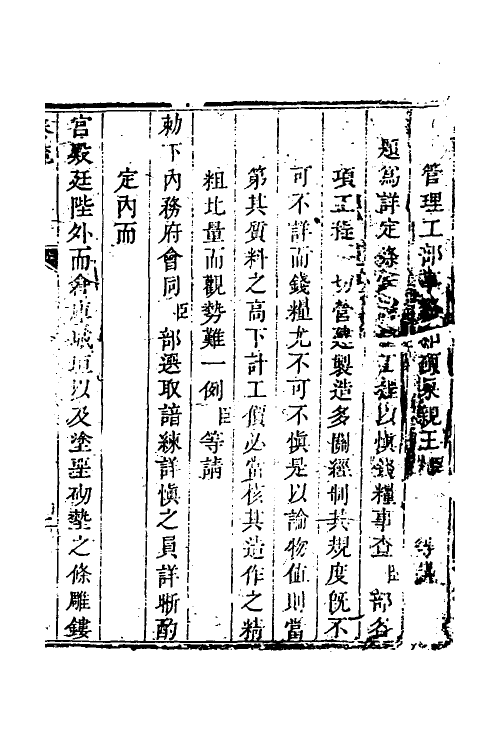 管理工部事務和碩果親王臣 等謹
題為詳定條 工程以慎錢糧事查臣部各
項工程一切營建製造多關經制其規度既不
可不詳而錢糧尤不可不慎是以論物值則當
第其質料之高下計工價必當核其造作之精
粗比量而觀勢難一例臣等請
勅下內務府會同臣部選取諳練詳慎之員詳晰酌
定內而
宮殿廷陛外而倉庫城垣以及塗墍砌墊之條雕鏤